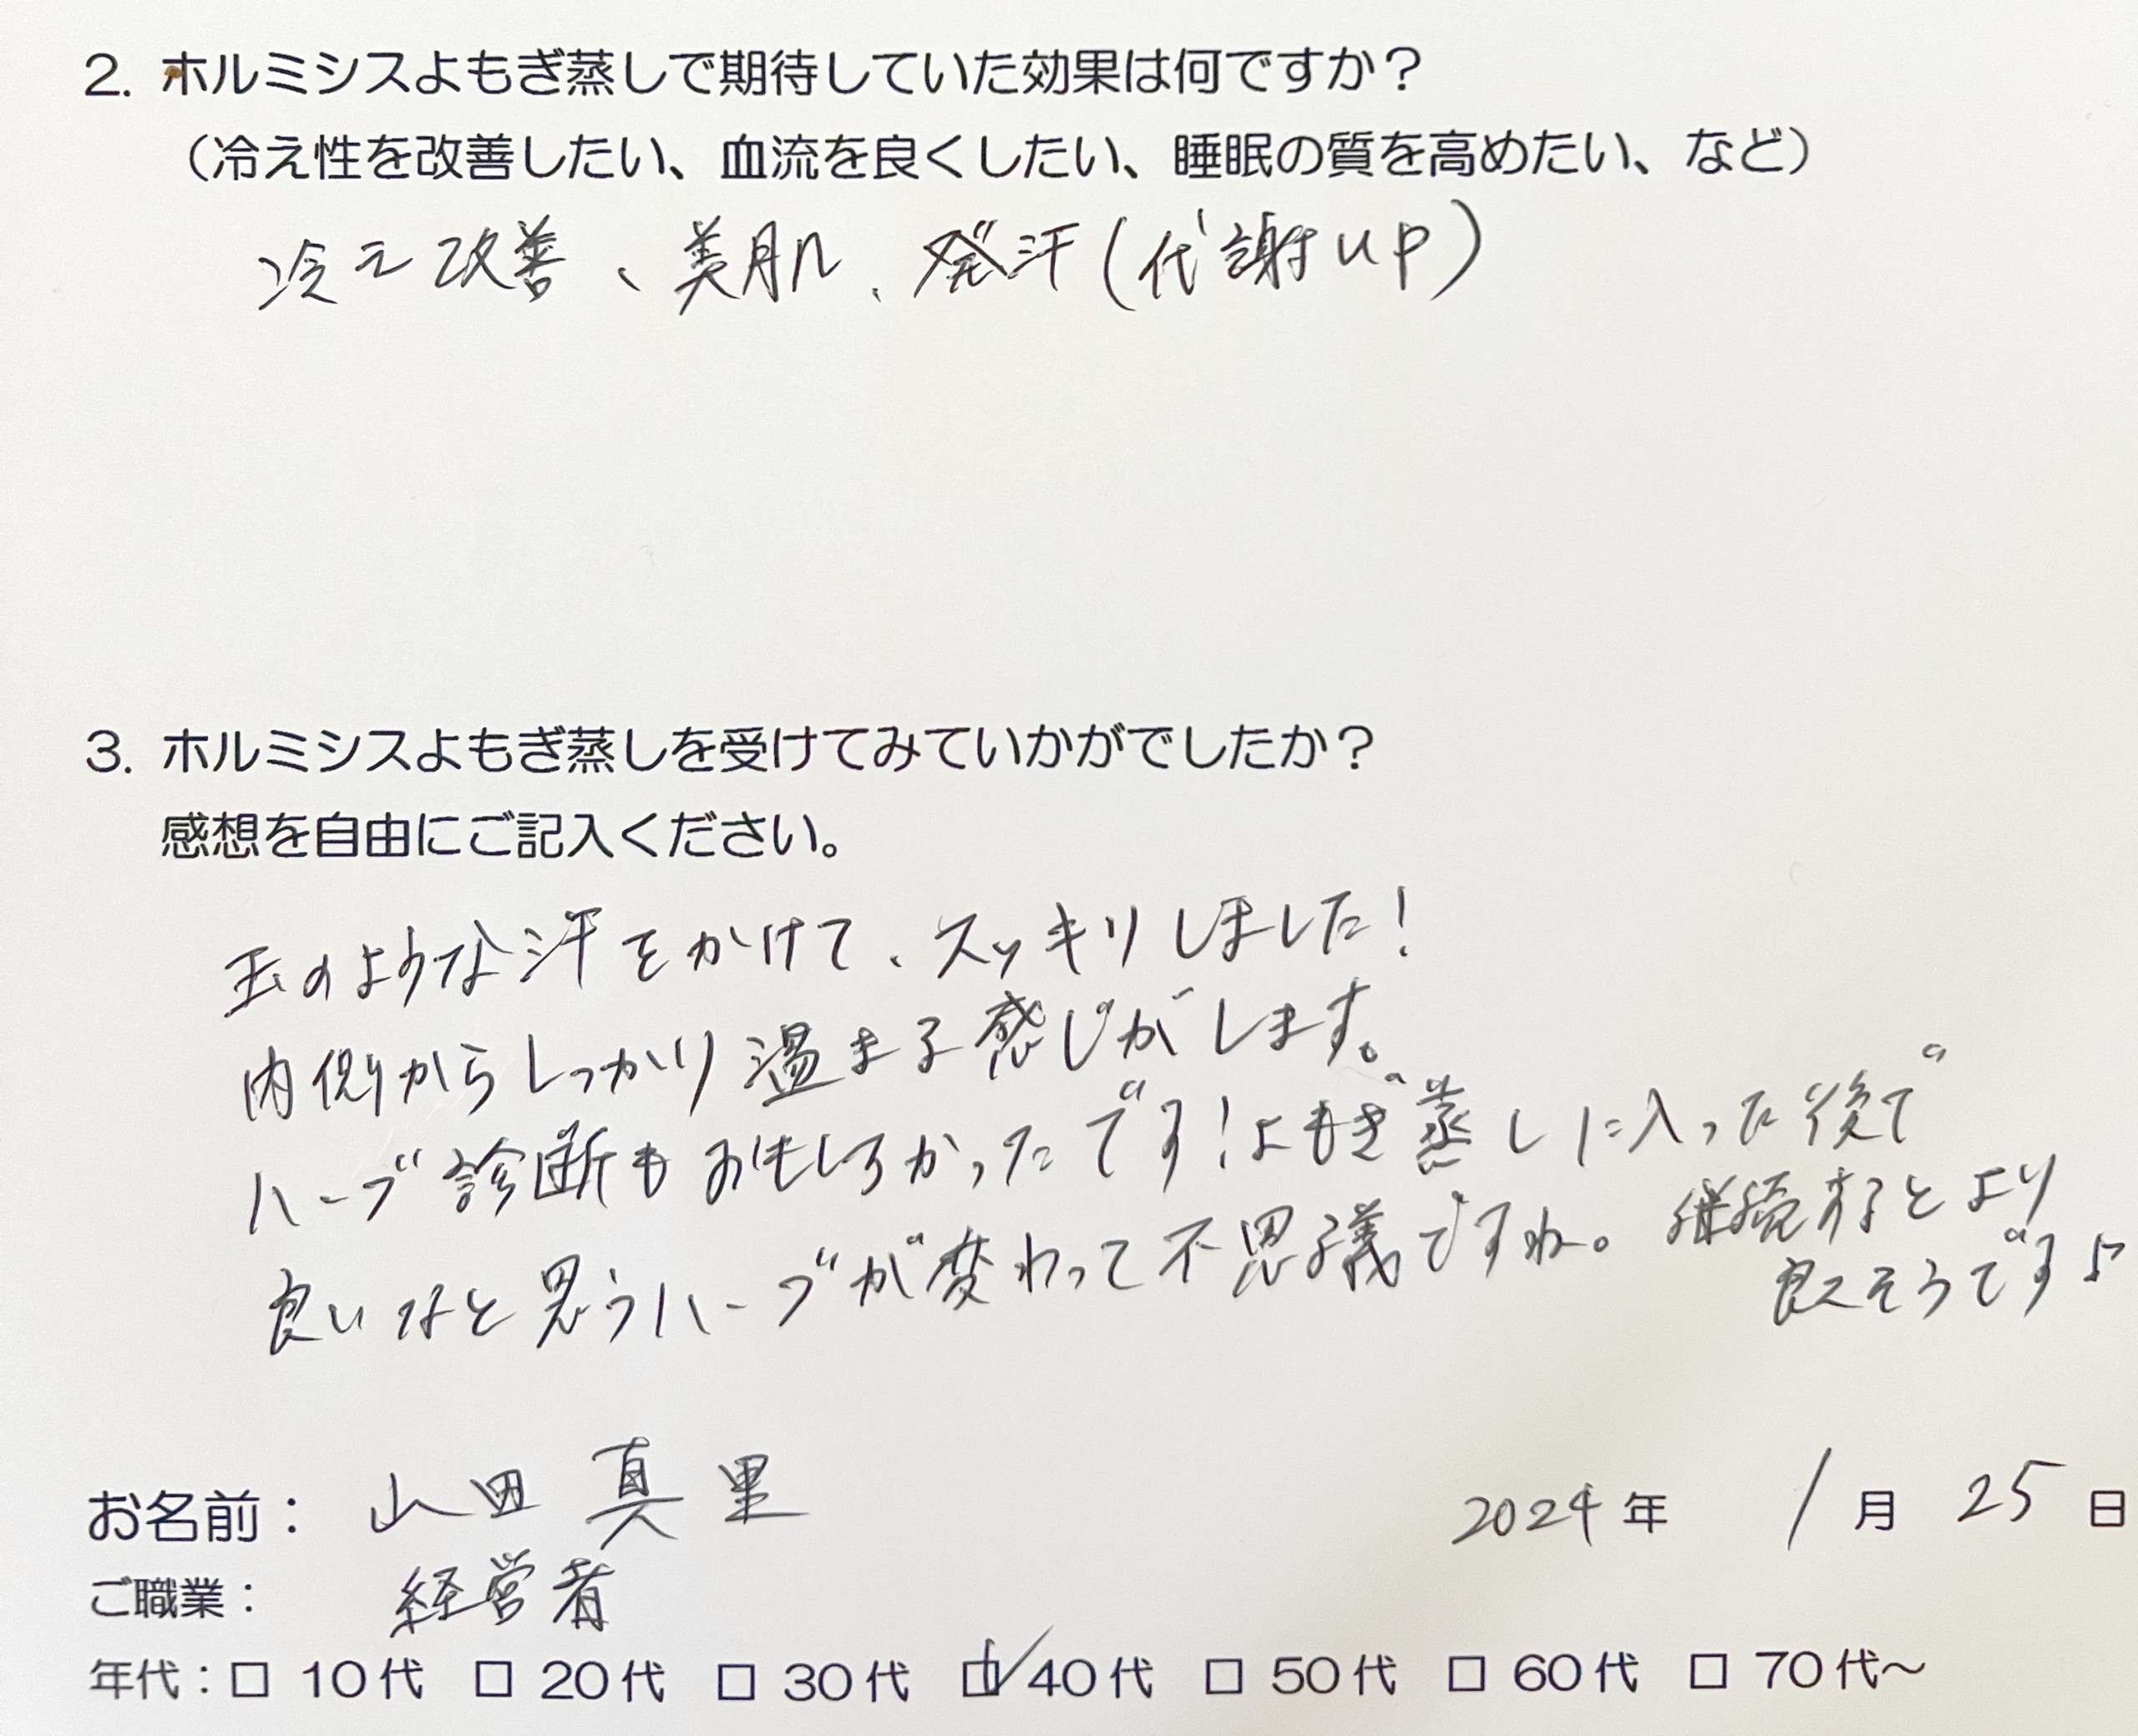 2. ホルミシスよもぎ蒸しで期待していた効果は何ですか？
（冷え性を改善したい、血流を良くしたい、睡眠の質を高めたい、など）
冷え改善、美肌、発汗（代謝up）
3. ホルミシスよもぎ蒸しを受けてみていかがでしたか？
感想を自由にご記入ください。
玉のような汗をかけて、スッキリしました！
内側からしっかり温まる感じがします。
ハーブ診断もおもしろかったです！よもぎ蒸しに入った後で
良いなと思うハーブが変わって不思議ですね。継続するとより
良さそうです♪
お名前： 山田 真里 2024年 1月 25日
ご職業： 経営者
年代：□ 10代 □ 20代 □ 30代 ☑ 40代 □ 50代 □ 60代 □ 70代～